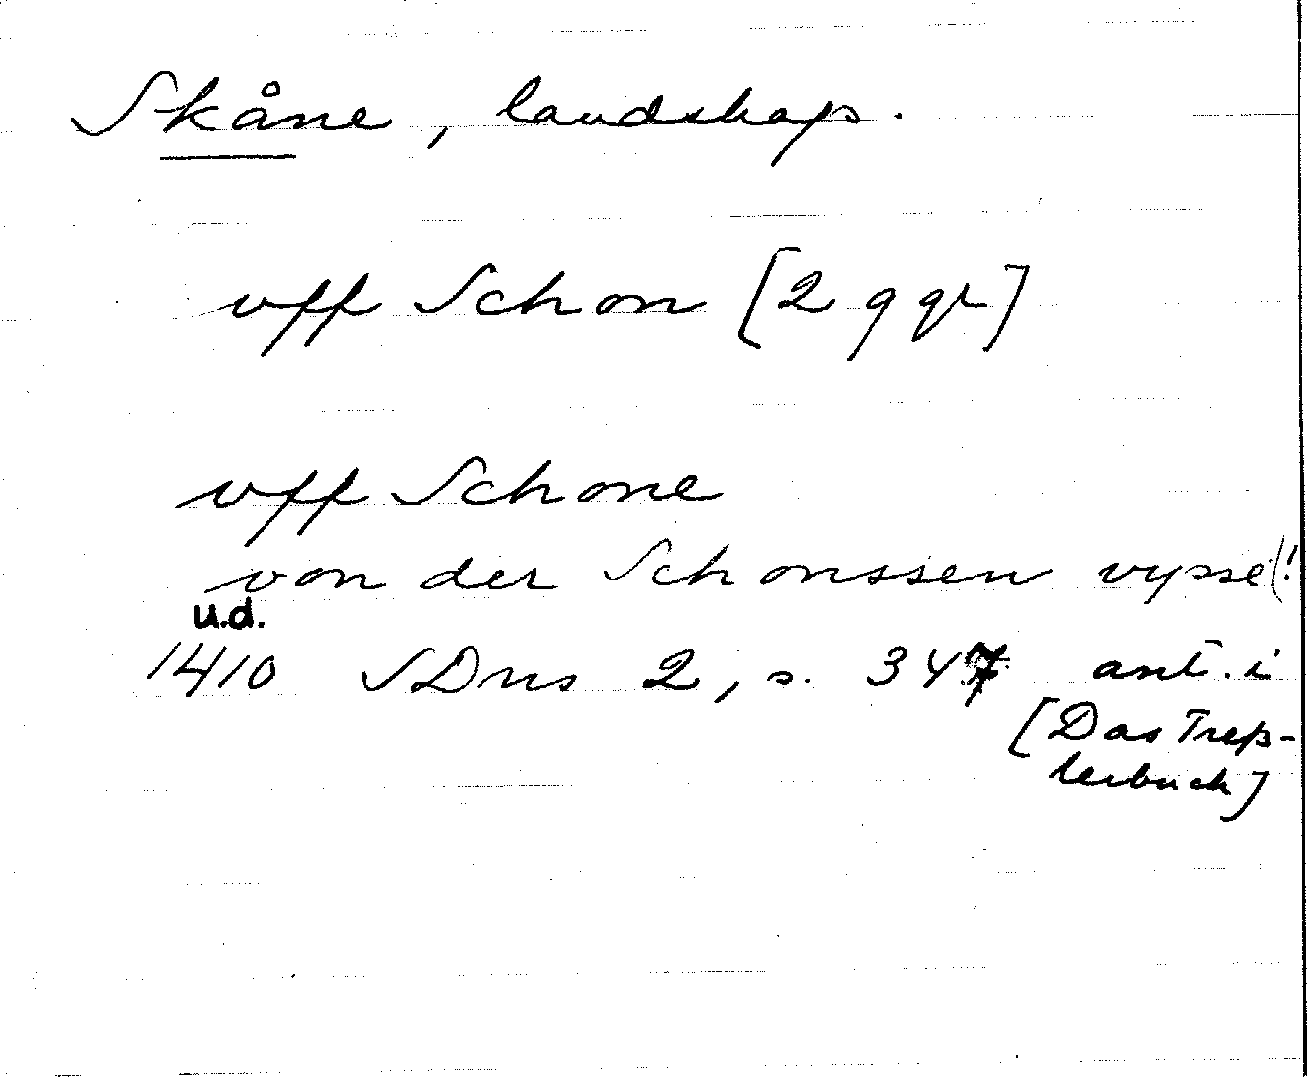 Skåne, landskap.
vff Schon [2 ggr]
vff Schone
von der Schonssen vysse(!
u.d.
1410 SDns 2, s. 347 ant. i
[Das Treß-
lerbuch]